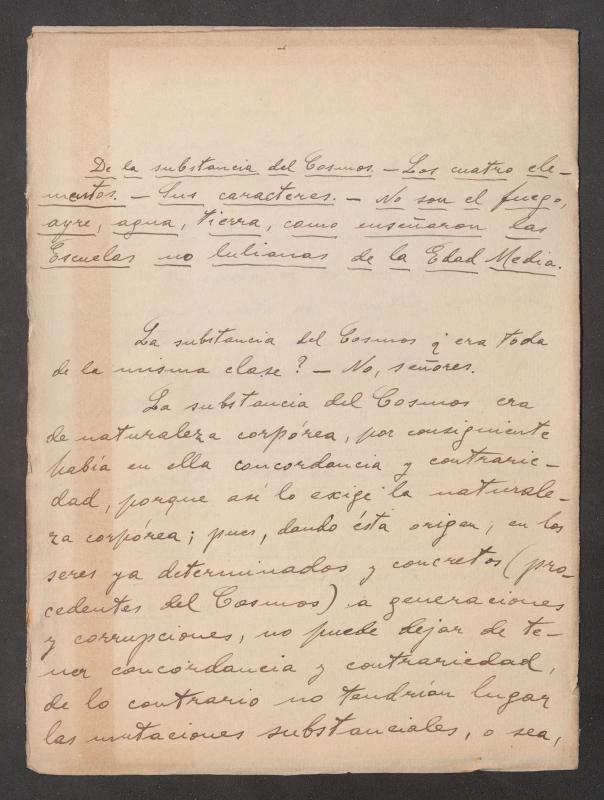 De la substancia del Cosmos. - Los cuatro ele-
mentos. - Sus caracteres. - No son el fuego,
ayre, agua, tierra, como enseñaron las
Escuelas no lulianas de la Edad Media.
La substancia del Cosmos ¿era toda
de la misma clase? - No, señores.
La substancia del Cosmos era
de naturaleza corpórea, por consiguiente
había en ella concordancia y contrarie-
dad, porque así lo exige la naturale-
za corpórea; pues, dando ésta origen, en los
seres ya determinados y concretos (pro-
cedentes del Cosmos) a generaciones
y corrupciones, no puede dejar de te-
ner concordancia y contrariedad,
de lo contrario no tendrían lugar
las mutaciones substanciales, o sea,